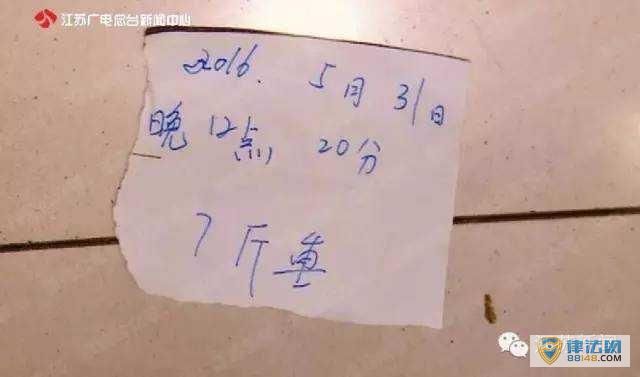 江苏广电总台新闻中心
2016. 5月31日
晚12点 20分
7斤重
律法网
88148.com